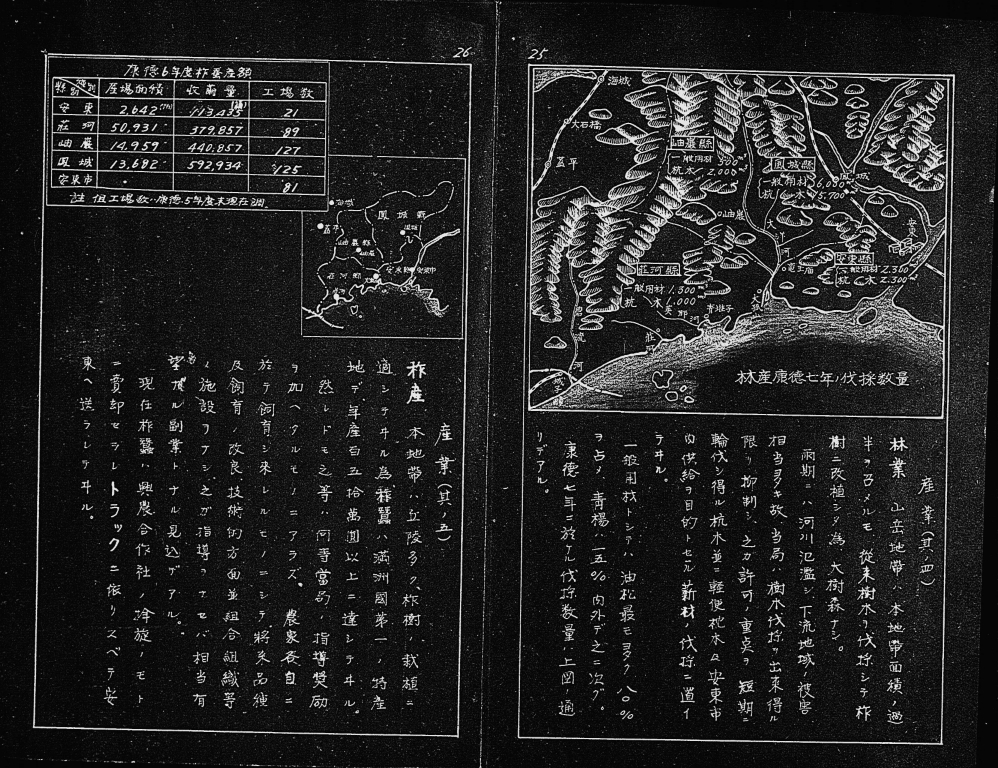 25
海城
大石橋
蓋平
岫巖縣
一般用材
坑木 2.000
鳳城縣
一般用材 6,080
坑木 15.700
鳳城
岫巖
安東
安東縣
一般用材 2.300
坑木 2.300
莊河縣
一般用材 1.300
坑木 1.000
青堆子
莊河
林産康德七年ノ伐採数量
産業(其ノ四)
林業 山岳地帶ハ本地帶面積ノ過
半ヲ占メルモ、從来樹木ヲ伐採シテ柞
樹ニ改植シタ為、大樹森ナシ。
雨期ニハ河川氾濫シ、下流地域ノ被害
相当多キ故、当局ハ樹木伐採ヲ出来得ル
限リ抑制シ、之ガ許可ノ重点ヲ短期ニ
輪伐シ得ル坑木並ニ軽便枕木及安東市
内供給ヲ目的トセル薪材ノ伐採ニ置イ
テヰル。
一般用材トシテハ油松最モ多ク八〇%
ヲ占メ、青楊ハ一五%内外デ之ニ次グ。
康德七年ニ於ケル伐採数量ハ上図ノ通
リデアル。
26
康德6年度柞蚕産額
縣別 種別 蚕場面積 收繭量 工場数
安東 2,642 113,435 21
莊河 50,931 379,857 89
岫巖 14,959 440,857 127
鳳城 13,682 592,934 125
安東市 81
註 但工場数ハ康德5年度末現在調
海城
蓋平
鳳城縣
鳳城
岫巖縣
岫巖
安東縣
安東市
莊河縣
莊河
産業(其ノ五)
柞産 本地帶ハ丘陵多ク、柞樹ノ栽植ニ
適シテヰル為、柞蠶ハ満洲國第一ノ特産
地デ、年産百五拾萬圓以上ニ達シテヰル。
然レドモ之等ハ何等當局ノ指導奨励
ヲ加ヘタルモノニアラズ、農家各自ニ
於テ飼育シ来レルモノニシテ、将来品種
及飼育ノ改良、技術的方面並組合組織等
ノ施設ヲナシ、之ガ指導ヲナセバ相当有
望ナル副業トナル見込デアル。
現在柞蠶ハ興農合作社ノ斡旋ノモト
ニ賣却セラレ、トラックニ依リスベテ安
東ヘ送ラレテヰル。